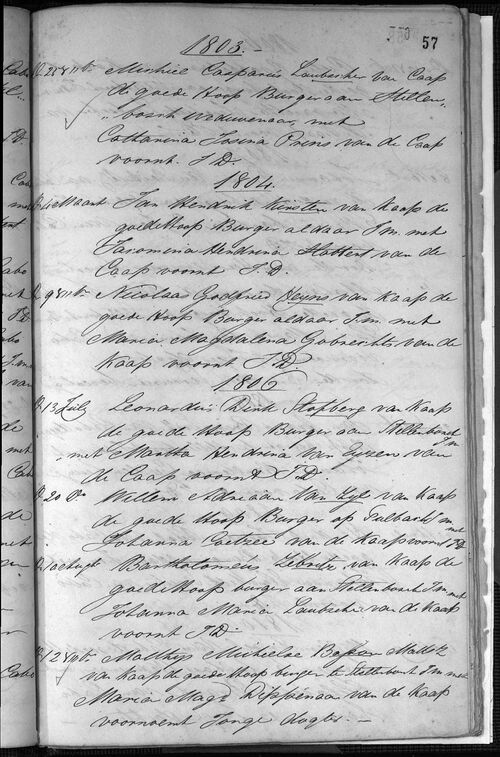 57
1803.-
Michiel Casparus Laubscher van Caap
de goede Hoop Burger aan Stellen„
„bosch weduwenaar, met
Catharina Josina Prens van de Caap
voornt. J.D.
1804.
Maart Jan Hendrik Kirsten van Kaap de
goede Hoop Burger aldaar J.m. met
Jacomina Hendrina Hattert van de
Caap voornt J.D.
Nicolaas Godfried Heyns van Kaap de
goede Hoop Burger aldaar J.m. met
Maria Magdalena Gobrechts van de
Kaap voornt J.D.
1806
13 July Leonardus Dirk Stofberg van Kaap
de goede Hoop Burger aan Stellenbosch J.m.
„met Martha Hendrina van Eyzen van
de Caap voornt J.D.
20 do Willem Adriaan Van Zyl van Kaap
de goede Hoop Burger op Tulbach J.m. met
Johanna Coetzee van de Kaap voornt J.D.
Bartholomeus van Kaap de
goede Hoop burger aan Stellenbosch J.m. met
Johanna Maria Laubscher van de Kaap
voornt J.D.
Matthys Michielse Basson Mattsz
van Kaap de goede Hoop burger te Stellenbosch J.m. met
Maria Magd Dippenaar van de Kaap
voornoemt Jonge dogter.-